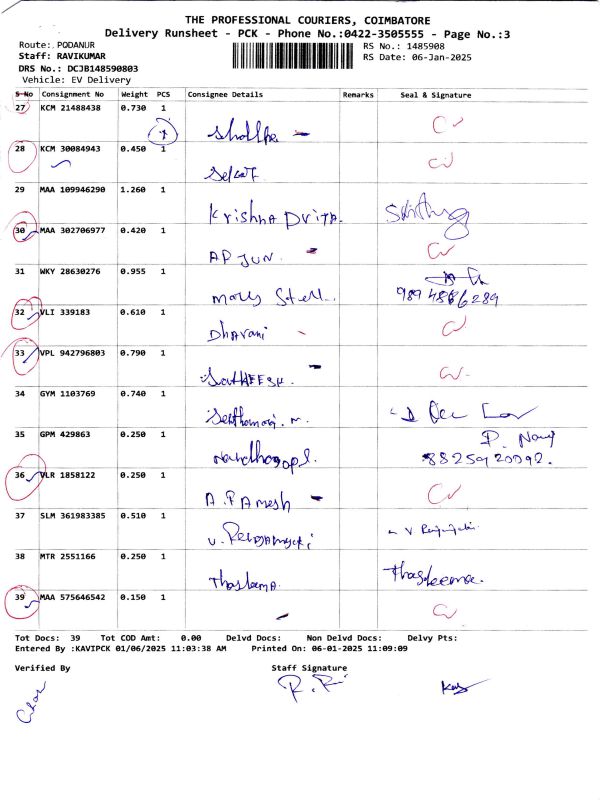 THE PROFESSIONAL COURIERS, COIMBATORE
Delivery Runsheet - PCK - Phone No.:0422-3505555 - Page No.:3
Route: PODANUR RS No.: 1485908
Staff: RAVIKUMAR RS Date: 06-Jan-2025
DRS No.: DCJB148590803
Vehicle: EV Delivery
S No Consignment No Weight PCS Consignee Details Remarks Seal & Signature
27 KCM 21488438 0.730 1
28 KCM 30084943 0.450 1
29 MAA 109946290 1.260 1
Krishna Priya.
30 MAA 302706977 0.420 1
AP JUN.
31 WKY 28630276 0.955 1
9894886289
32 VLI 339183 0.610 1
Dharani
33 VPL 942796803 0.790 1
SatHEESH.
34 GYM 1103769 0.740 1
35 GPM 429863 0.250 1
Nandhagopl. 8825920092.
36 VLR 1858122 0.250 1
A. RAmesh
37 SLM 361983385 0.510 1
38 MTR 2551166 0.250 1
ThasleemA. Thasleema.
39 MAA 575646542 0.150 1
Tot Docs: 39 Tot COD Amt: 0.00 Delvd Docs: Non Delvd Docs: Delvy Pts:
Entered By :KAVIPCK 01/06/2025 11:03:38 AM Printed On: 06-01-2025 11:09:09
Verified By Staff Signature